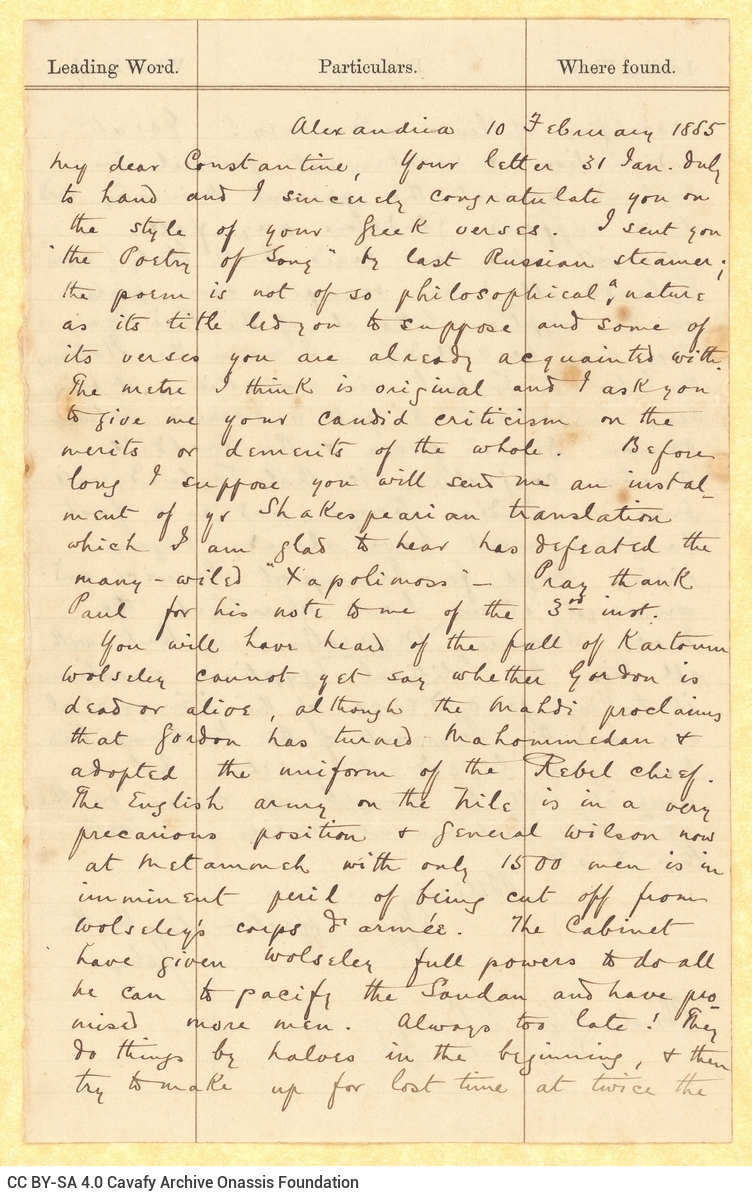 Leading Word. Particulars. Where found.
Alexandria 10 February 1885
My dear Constantine, Your letter 31 Jan. duly
to hand and I sincerely congratulate you on
the style of your Greek verses. I sent you
"the Poetry of Song" by last Russian steamer;
the poem is not of so philosophical a nature
as its title led you to suppose and some of
its verses you are already acquainted with.
The metre I think is original and I ask you
to give me your candid criticism on the
merits or demerits of the whole. Before
long I suppose you will send me an instal-
ment of yr Shakespearian translation
which I am glad to hear has defeated the
many-wiled "Xapolimoss" — Pray thank
Paul for his note to me of the 3rd inst.
You will have heard of the fall of Kartoum
Wolseley cannot yet say whether Gordon is
dead or alive, although the Mahdi proclaims
that Gordon has turned Mahommedan &
adopted the uniform of the Rebel chief.
The English army on the Nile is in a very
precarious position & General Wilson now
at Metammeh with only 1500 men is in
imminent peril of being cut off from
Wolseley's corps d'armée. The Cabinet
have given Wolseley full powers to do all
he can to pacify the Soudan and have pro-
mised more men. Always too late! They
do things by halves in the beginning, & then
try to make up for lost time at twice the
CC BY-SA 4.0 Cavafy Archive Onassis Foundation